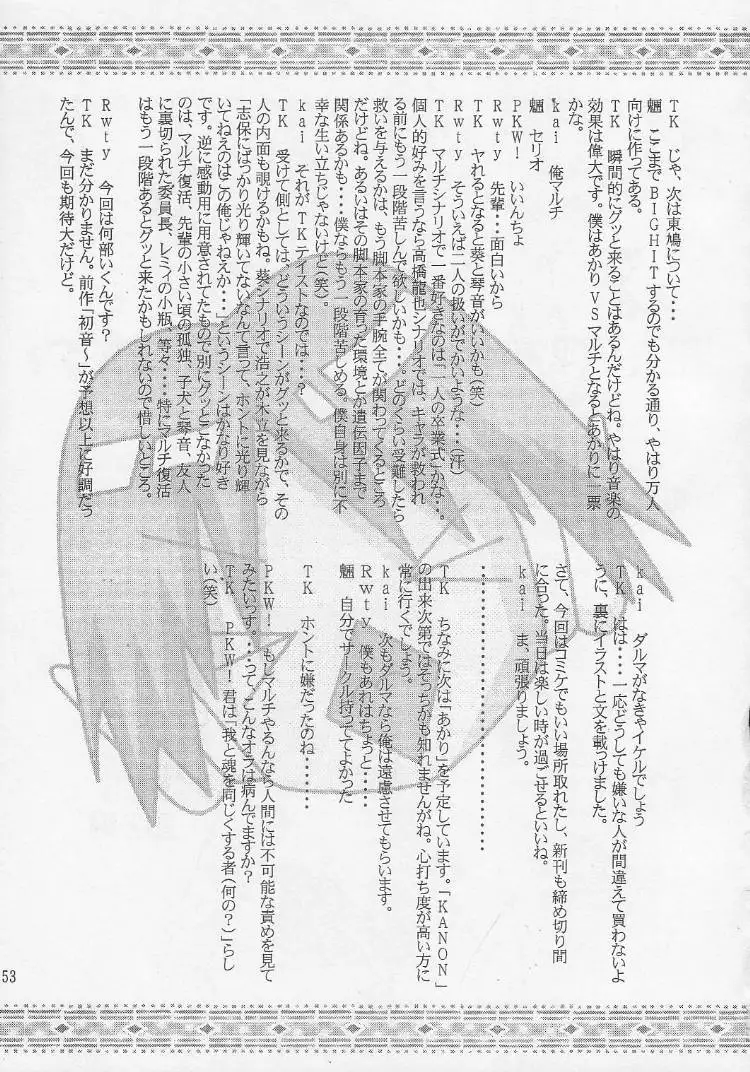 TK　じゃ、次は東鳩について・・・
魎　ここまでBIGHITするのでも分かる通り、やはり万人
向けに作ってある。
TK　瞬間的にグッと来ることはあるんだけどね。やはり音楽の
効果は偉大です。僕はあかりVSマルチとなるとあかりに一票
かな。
kai　俺マルチ
魎　セリオ
PKW!　いいんちょ
Rwty　先輩・・・面白いから
TK　ヤれるとなると葵と琴音がいいかも(笑)
Rwty　そういえば二人の扱いがでかいような・・・(汗)
TK　マルチシナリオで一番好きなのは「二人の卒業式」かな・・。
個人的好みを言うなら高橋龍也シナリオでは、キャラが救われ
る前にもう一段階苦しんで欲しいかも・・・。どのくらい受難したら
救いを与えるかは、もう脚本家の手腕全てが関わってくるところ
だけどね。あるいはその脚本家の育った環境とか遺伝因子まで
関係あるかも・・・僕ならもう一段階苦しめる。僕自身は別に不
幸な生い立ちじゃないけど(笑)。
kai　それがTKテイストなのでは・・・?
TK　受けて側としては、どういうシーンがグッと来るかで、その
人の内面も覗けるかもね。葵シナリオで浩之が木立を見ながら
「志保にばっかり光り輝いてないなんて言って、ホントに光り輝
いてねえのはこの俺じゃねえか・・・」というシーンはかなり好き
です。逆に感動用に用意されてたもので別にグッとこなかった
のは、マルチ復活、先輩の小さい頃の孤独、子犬と琴音、友人
に裏切られた委員長、レミィの小瓶、等々・・・・特にマルチ復活
はもう一段階あるとグッと来たかもしれないので惜しいところ。
Rwty　今回は何部いくんです?
TK　まだ分かりません。前作「初音〜」が予想以上に好調だっ
たんで、今回も期待大だけど。
kai　ダルマがなきゃイケルでしょう
TK　はは・・・・一応どうしても嫌いな人が間違えて買わないよ
うに、裏にイラストと文を載っけました。
さて、今回はコミケでもいい場所取れたし、新刊も締め切り間
に合った。当日は楽しい時が過ごせるといいね。
kai　ま、頑張りましょう。
TK　ちなみに次は「あかり」を予定しています。「KANON」
の出来次第ではそっちかも知れませんがね。心打ち度が高い方に
常に行くでしょう。
kai　次もダルマなら俺は遠慮させてもらいます。
Rwty　僕もあれはちょっと・・・・
魎　自分でサークル持っててよかった
TK　ホントに嫌だったのね・・・・・
PKW!　もしマルチやるんなら人間には不可能な責めを見て
みたいっす。・・・って、こんなオラは病んでますか?
TK　PKW!君は「我と魂を同じくする者(何の?)」らし
い(笑)
53